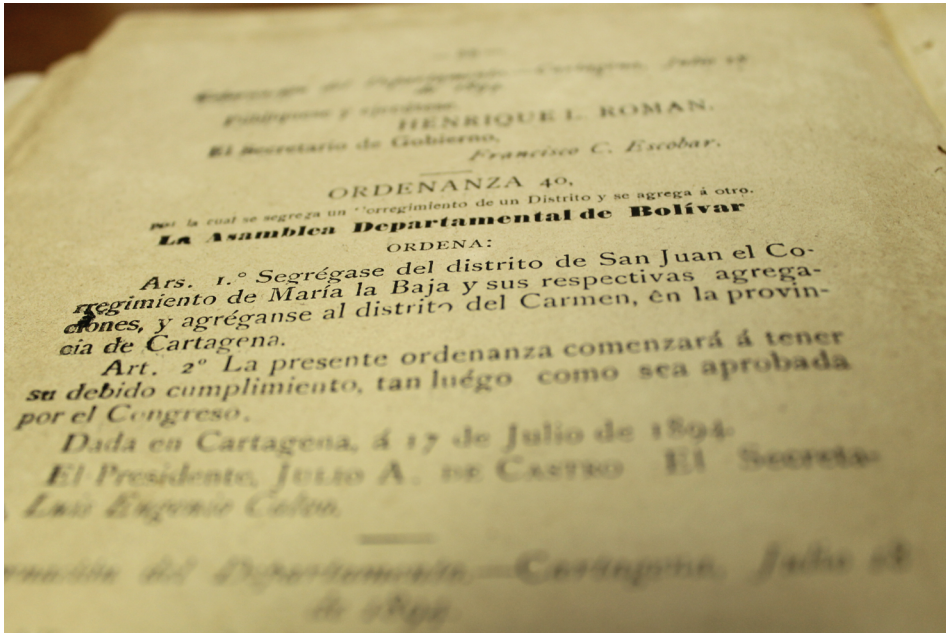 Gobernación del Departamento.—Cartagena, Julio 18
de 1894.
Publíquese y ejecútese.
HENRIQUE L. ROMAN.
El Secretario de Gobierno,
Francisco C. Escobar.
ORDENANZA 40,
por la cual se segrega un Corregimiento de un Distrito y se agrega á otro.
La Asamblea Departamental de Bolívar
ORDENA:
Ars. 1.° Segrégase del distrito de San Juan el Co-
rregimiento de María la Baja y sus respectivas agrega-
ciones, y agréganse al distrito del Carmen, en la provin-
cia de Cartagena.
Art. 2° La presente ordenanza comenzará á tener
su debido cumplimiento, tan luégo como sea aprobada
por el Congreso.
Dada en Cartagena, á 17 de Julio de 1894.
El Presidente, JULIO A. DE CASTRO El Secreta-
Luis Eugenio
del Departamento.—Cartagena, Julio 18
de 1894.